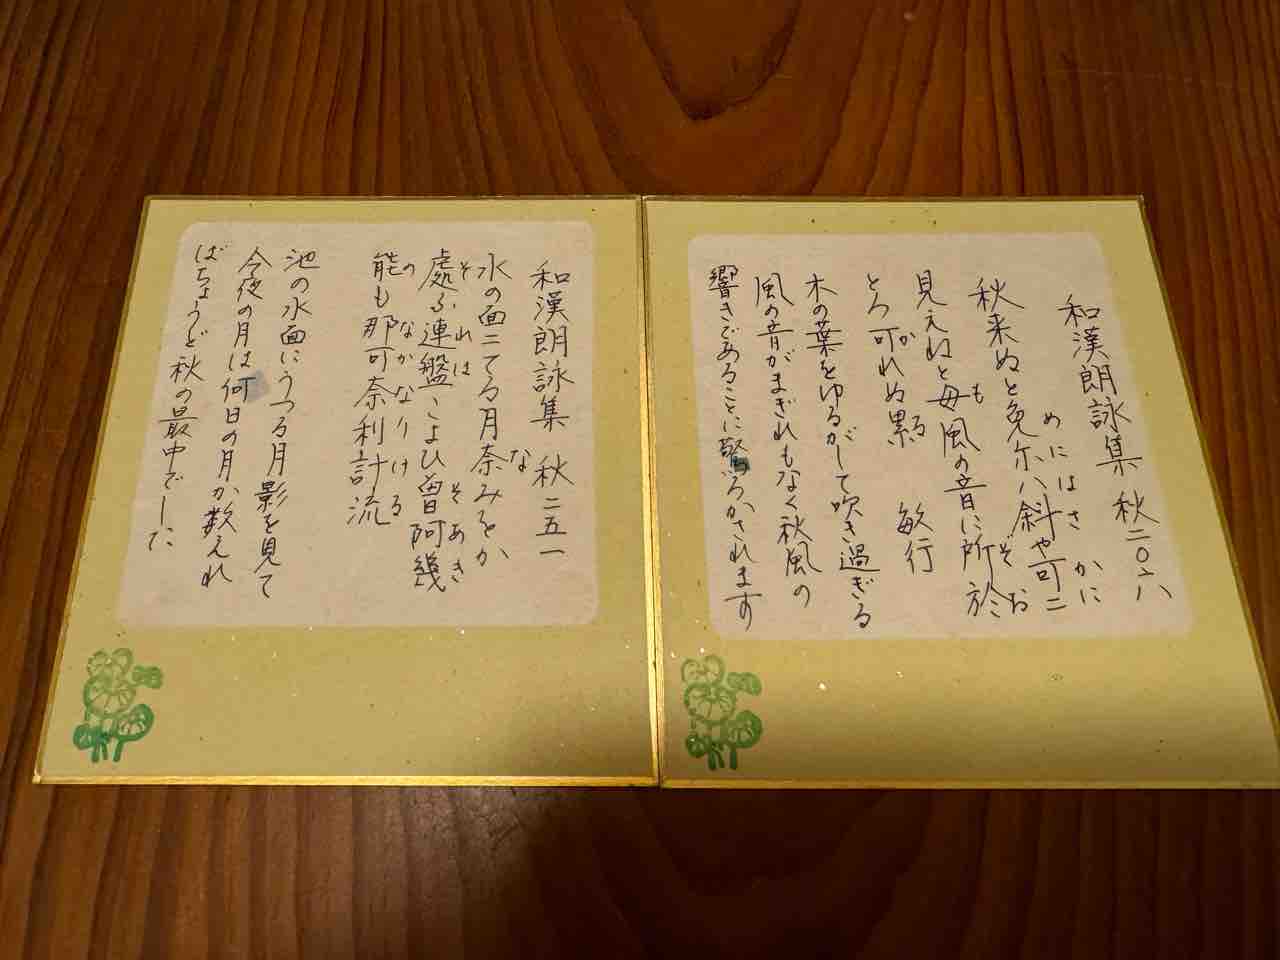 和漢朗詠集 秋二〇六
めにはさ かに
秋来ぬと免尓ハ斜や可二
も ぞお
見えねと毎風の音に所於
か る
とろ可れぬ累 敏行
木の葉をゆるがして吹き過ぎる
風の音がまぎれもなく秋風の
響きであることに驚ろかされます
和漢朗詠集 秋二五一
な
水の面ニてる月奈みをか
それは そあき
處ふ連盤こよひ曽阿幾
のなかなりける
能も那可奈利計流
池の水面にうつる月影を見て
今夜の月は何日の月か数えれ
ばちょうど秋の最中でした